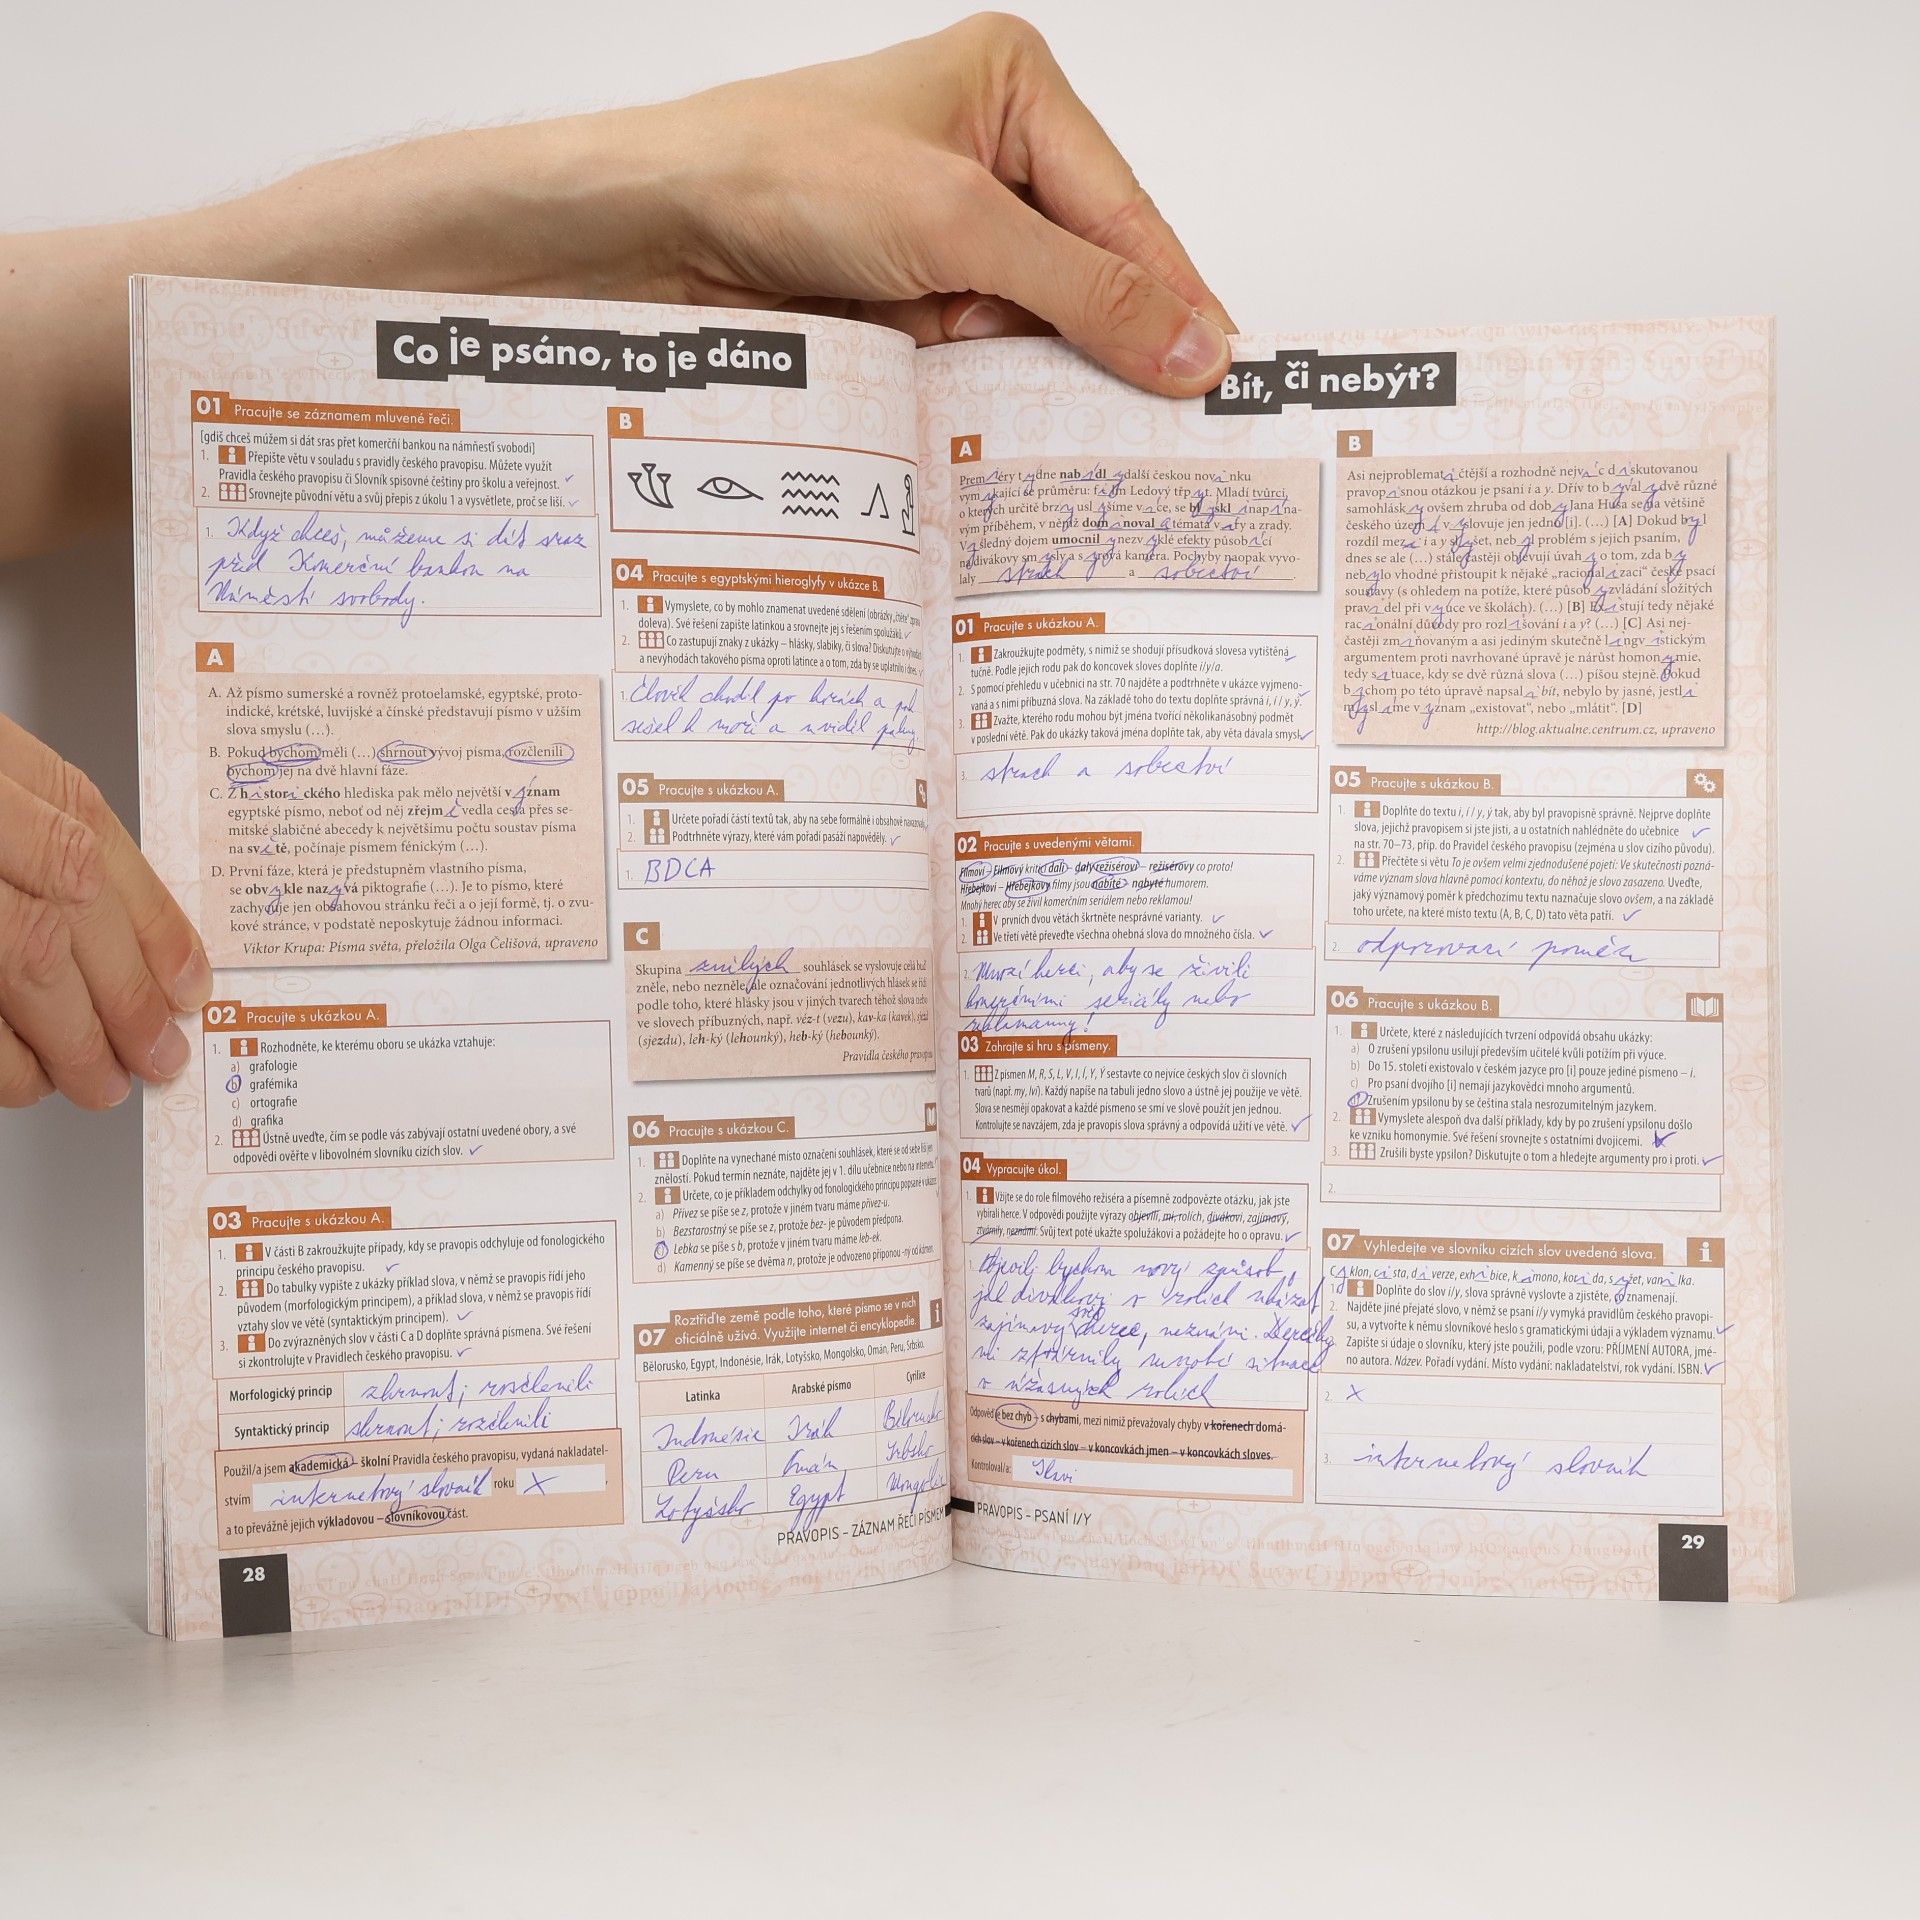 Co je psáno, to je dáno
01 Pracujte se záznamem mluvené řeči.
[gdiš chceš múžem si dát sras přet komerčňí bankou na námňesťí svobodi]
1. Přepište větu v souladu s pravidly českého pravopisu. Můžete využít
Pravidla českého pravopisu či Slovník spisovné češtiny pro školu a veřejnost.
2. Srovnejte původní větu a svůj přepis z úkolu 1 a vysvětlete, proč se liší.
1. Když chceš, můžeme si dát sraz
před Komerční bankou na
Náměstí svobody.
A
A. Až písmo sumerské a rovněž protoelamské, egyptské, proto-
indické, krétské, luvijské a čínské představují písmo v užším
slova smyslu (…).
B. Pokud bychom měli (…) shrnout vývoj písma, rozčlenili
bychom jej na dvě hlavní fáze.
C. Z historického hlediska pak mělo největší význam
egyptské písmo, neboť od něj zřejmě vedla cesta přes se-
mitské slabičné abecedy k největšímu počtu soustav písma
na světě, počínaje písmem fénickým (…).
D. První fáze, která je předstupněm vlastního písma,
se obvykle nazývá piktografie (…). Je to písmo, které
zachycuje jen obsahovou stránku řeči a o její formě, tj. o zvu-
kové stránce, v podstatě neposkytuje žádnou informaci.
Viktor Krupa: Písma světa, přeložila Olga Čelišová, upraveno
02 Pracujte s ukázkou A.
1. Rozhodněte, ke kterému oboru se ukázka vztahuje:
a) grafologie
b) grafémika
c) ortografie
d) grafika
2. Ústně uveďte, čím se podle vás zabývají ostatní uvedené obory, a své
odpovědi ověřte v libovolném slovníku cizích slov.
03 Pracujte s ukázkou A.
1. V části B zakroužkujte případy, kdy se pravopis odchyluje od fonologického
principu českého pravopisu.
2. Do tabulky vypište z ukázky příklad slova, v němž se pravopis řídí jeho
původem (morfologickým principem), a příklad slova, v němž se pravopis řídí
vztahy slov ve větě (syntaktickým principem).
3. Do zvýrazněných slov v části C a D doplňte správná písmena. Své řešení
si zkontrolujte v Pravidlech českého pravopisu.
Morfologický princip shrnout; rozčlenili
Syntaktický princip shrnout; rozčlenili
Použil/a jsem akademická – školní Pravidla českého pravopisu, vydaná nakladatel-
stvím internetový slovník roku X
a to převážně jejich výkladovou – slovníkovou část.
28
B
04 Pracujte s egyptskými hieroglyfy v ukázce B.
1. Vymyslete, co by mohlo znamenat uvedené sdělení (obrázky „čtěte“ zprava
doleva). Své řešení zapište latinkou a srovnejte jej s řešením spolužáků.
2. Co zastupují znaky z ukázky – hlásky, slabiky, či slova? Diskutujte o výhodách
a nevýhodách takového písma oproti latince a o tom, zda by se uplatnilo i dnes.
1. Člověk chodil po horách a pak
sešel k moři a uviděl
05 Pracujte s ukázkou A.
1. Určete pořadí částí textů tak, aby na sebe formálně i obsahově navazovaly.
2. Podtrhněte výrazy, které vám pořadí pasáží napověděly.
1. BDCA
C
Skupina znělých souhlásek se vyslovuje celá buď
zněle, nebo nezněle, ale označování jednotlivých hlásek se řídí
podle toho, které hlásky jsou v jiných tvarech téhož slova nebo
ve slovech příbuzných, např. véz-t (vezu), kav-ka (kavek), sjezd
(sjezdu), leh-ký (lehounký), heb-ký (hebounký).
Pravidla českého pravopisu
06 Pracujte s ukázkou C.
1. Doplňte na vynechané místo označení souhlásek, které se od sebe liší jen
znělostí. Pokud termín neznáte, najděte jej v 1. dílu učebnice nebo na internetu.
2. Určete, co je příkladem odchylky od fonologického principu popsané v ukázce.
a) Přivez se píše se z, protože v jiném tvaru máme přivez-u.
b) Bezstarostný se píše se z, protože bez- je původem předpona.
c) Lebka se píše s b, protože v jiném tvaru máme leb-ek.
d) Kamenný se píše se dvěma n, protože je odvozeno příponou -ný od kámen.
07 Roztřiďte země podle toho, které písmo se v nich
oficiálně užívá. Využijte internet či encyklopedie.
Bělorusko, Egypt, Indonésie, Irák, Lotyšsko, Mongolsko, Omán, Peru, Srbsko.
Latinka Arabské písmo Cyrilice
Indonésie Irák Bělorusko
Peru Omán Srbsko
Lotyšsko Egypt
PRAVOPIS – ZÁZNAM ŘEČI PÍSMEM
Bít, či nebýt?
A
Premiéry týdne nabídly další českou novinku
vymykající se průměru: film Ledový třpyt. Mladí tvůrci,
o kterých určitě brzy uslyšíme více, se blýskli napína-
vým příběhem, v němž dominovala témata víry a zrady.
Výsledný dojem umocnily nezvyklé efekty působící
na divákovy smysly a syrová kamera. Pochyby naopak vyvo-
laly strach a sobectví.
01 Pracujte s ukázkou A.
1. Zakroužkujte podměty, s nimiž se shodují přísudková slovesa vytištěná
tučně. Podle jejich rodu pak do koncovek sloves doplňte i/y/a.
2. S pomocí přehledu v učebnici na str. 70 najděte a podtrhněte v ukázce vyjmeno-
vaná a s nimi příbuzná slova. Na základě toho do textu doplňte správná i, í / y, ý.
3. Zvažte, kterého rodu mohou být jména tvořící několikanásobný podmět
v poslední větě. Pak do ukázky taková jména doplňte tak, aby věta dávala smysl.
3. strach a sobectví
02 Pracujte s uvedenými větami.
Filmoví – Filmový kritici dali – daly režisérovi – režisérovy co proto!
Hřebejkovi – Hřebejkovy filmy jsou nabité – nabyté humorem.
Mnohý herec aby se živil komerčním seriálem nebo reklamou!
1. V prvních dvou větách škrtněte nesprávné varianty.
2. Ve třetí větě převeďte všechna ohebná slova do množného čísla.
2. Mnozí herci, aby se živili
komerčními seriály nebo
03 Zahrajte si hru s písmeny.
1. Z písmen M, R, S, L, V, I, Í, Y, Ý sestavte co nejvíce českých slov či slovních
tvarů (např. my, lví). Každý napíše na tabuli jedno slovo a ústně jej použije ve větě.
Slova se nesmějí opakovat a každé písmeno se smí ve slově použít jen jednou.
Kontrolujte se navzájem, zda je pravopis slova správný a odpovídá užití ve větě.
04 Vypracujte úkol.
1. Vžijte se do role filmového režiséra a písemně zodpovězte otázku, jak jste
vybírali herce. V odpovědi použijte výrazy objevili, mi, rolích, divákovi, zajímavý,
ztvárnily, neznámí. Svůj text poté ukažte spolužákovi a požádejte ho o opravu.
1. Objevili bychom nový způsob,
jak divákovi v rolích ukázat
zajímavý herec, neznámí.
mi ztvárnily situace
v úžasných rolích
Odpověď je bez chyb – s chybami, mezi nimiž převažovaly chyby v kořenech domá-
cích slov – v kořenech cizích slov – v koncovkách jmen – v koncovkách sloves.
Kontroloval/a:
PRAVOPIS – PSANÍ I/Y
B
Asi nejproblematičtější a rozhodně nejvíc diskutovanou
pravopisnou otázkou je psaní i a y. Dřív to bývaly dvě různé
samohlásky, ovšem zhruba od doby Jana Husa se na většině
českého území vyslovuje jen jedno [i]. (…) [A] Dokud byl
rozdíl mezi i a y slyšet, nebyl problém s jejich psaním,
dnes se ale (…) stále častěji objevují úvahy o tom, zda by
nebylo vhodné přistoupit k nějaké „racionalizaci“ české psací
soustavy (s ohledem na potíže, které působí zvládání složitých
pravidel při výuce ve školách). (…) [B] Existují tedy nějaké
racionální důvody pro rozlišování i a y? (…) [C] Asi nej-
častěji zmiňovaným a asi jediným skutečně lingvistickým
argumentem proti navrhované úpravě je nárůst homonymie,
tedy situace, kdy se dvě různá slova (…) píšou stejně. Pokud
bychom po této úpravě napsali bít, nebylo by jasné, jestli
myslíme význam „existovat“, nebo „mlátit“. [D]
http://blog.aktualne.centrum.cz, upraveno
05 Pracujte s ukázkou B.
1. Doplňte do textu i, í / y, ý tak, aby byl pravopisně správně. Nejprve doplňte
slova, jejichž pravopisem si jste jisti, a u ostatních nahlédněte do učebnice
na str. 70–73, příp. do Pravidel českého pravopisu (zejména u slov cizího původu).
2. Přečtěte si větu To je ovšem velmi zjednodušené pojetí: Ve skutečnosti pozná-
váme význam slova hlavně pomocí kontextu, do něhož je slovo zasazeno. Uveďte,
jaký významový poměr k předchozímu textu naznačuje slovo ovšem, a na základě
toho určete, na které místo textu (A, B, C, D) tato věta patří.
2. odporovací poměr
06 Pracujte s ukázkou B.
1. Určete, které z následujících tvrzení odpovídá obsahu ukázky:
a) O zrušení ypsilonu usilují především učitelé kvůli potížím při výuce.
b) Do 15. století existovalo v českém jazyce pro [i] pouze jediné písmeno – i.
c) Pro psaní dvojího [i] nemají jazykovědci mnoho argumentů.
d) Zrušením ypsilonu by se čeština stala nesrozumitelným jazykem.
2. Vymyslete alespoň dva další příklady, kdy by po zrušení ypsilonu došlo
ke vzniku homonymie. Své řešení srovnejte s ostatními dvojicemi.
3. Zrušili byste ypsilon? Diskutujte o tom a hledejte argumenty pro i proti.
2.
07 Vyhledejte ve slovníku cizích slov uvedená slova.
Cyklon, cista, diverze, exhibice, kimono, korida, syžet, vanilka.
1. Doplňte do slov i/y, slova správně vyslovte a zjistěte, co znamenají.
2. Najděte jiné přejaté slovo, v němž se psaní i/y vymyká pravidlům českého pravopi-
su, a vytvořte k němu slovníkové heslo s gramatickými údaji a výkladem významu.
Zapište si údaje o slovníku, který jste použili, podle vzoru: PŘÍJMENÍ AUTORA, jmé-
no autora. Název. Pořadí vydání. Místo vydání: nakladatelství, rok vydání. ISBN.
2. X
3. internetový slovník
29